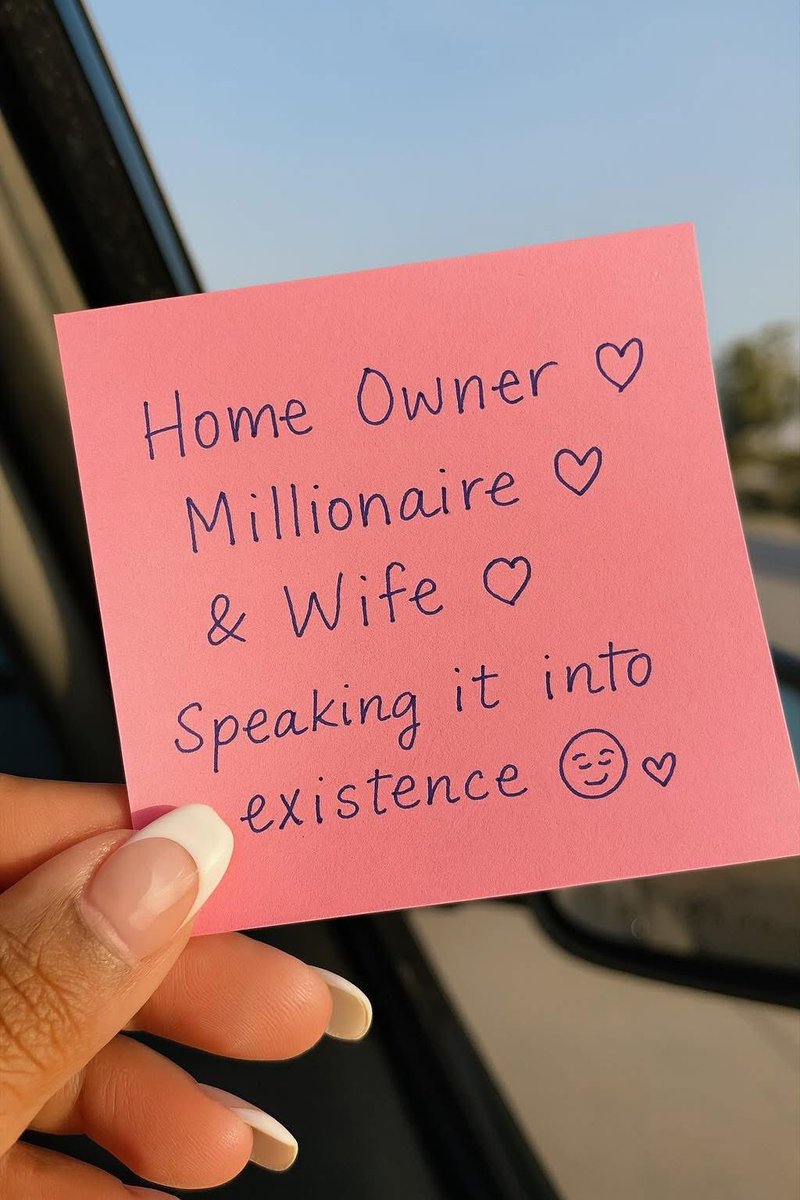 Home Owner ♡
Millionaire ♡
& Wife ♡
Speaking it into
existence 😌♡